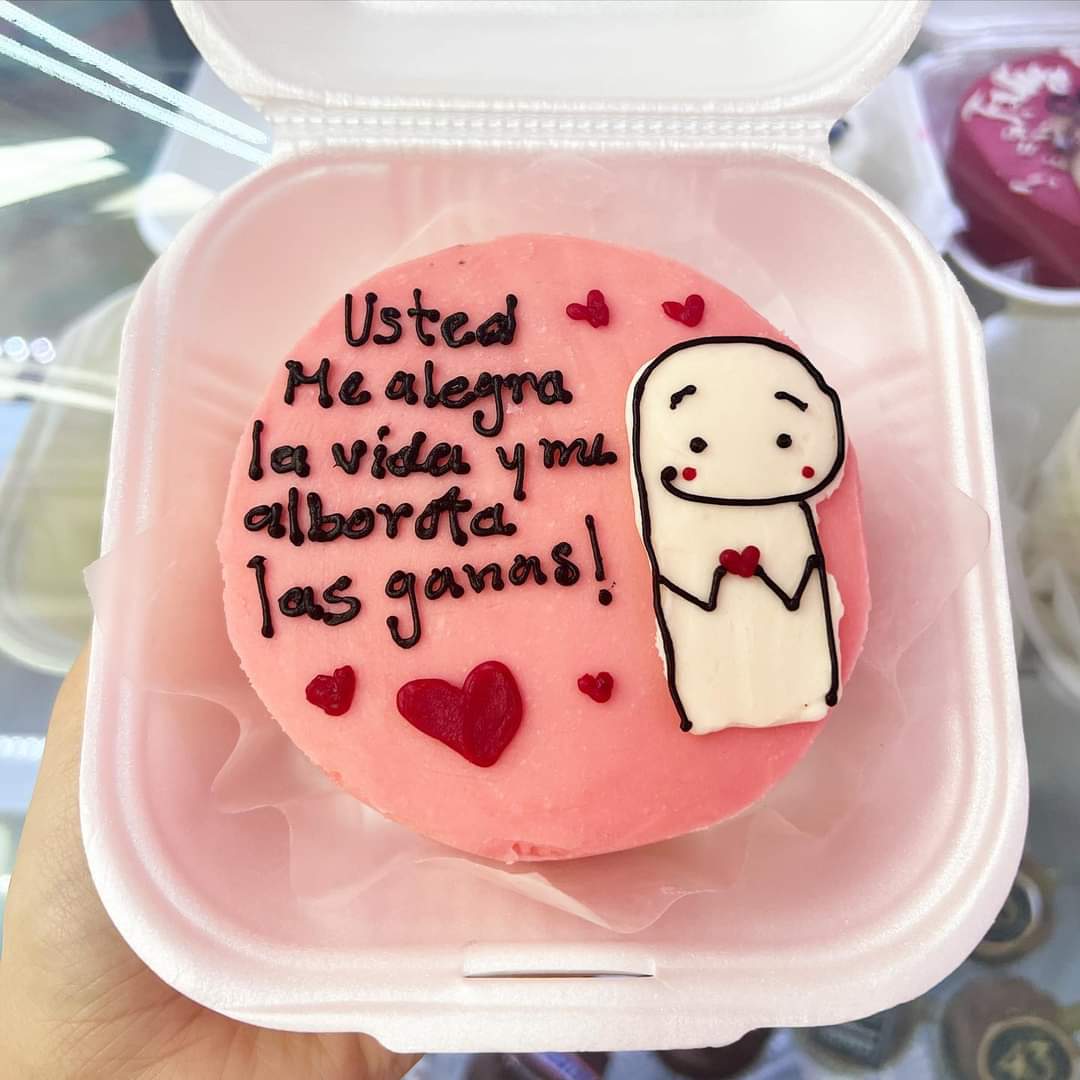 Usted
Me alegra
la vida y me
alborota
las ganas!
43